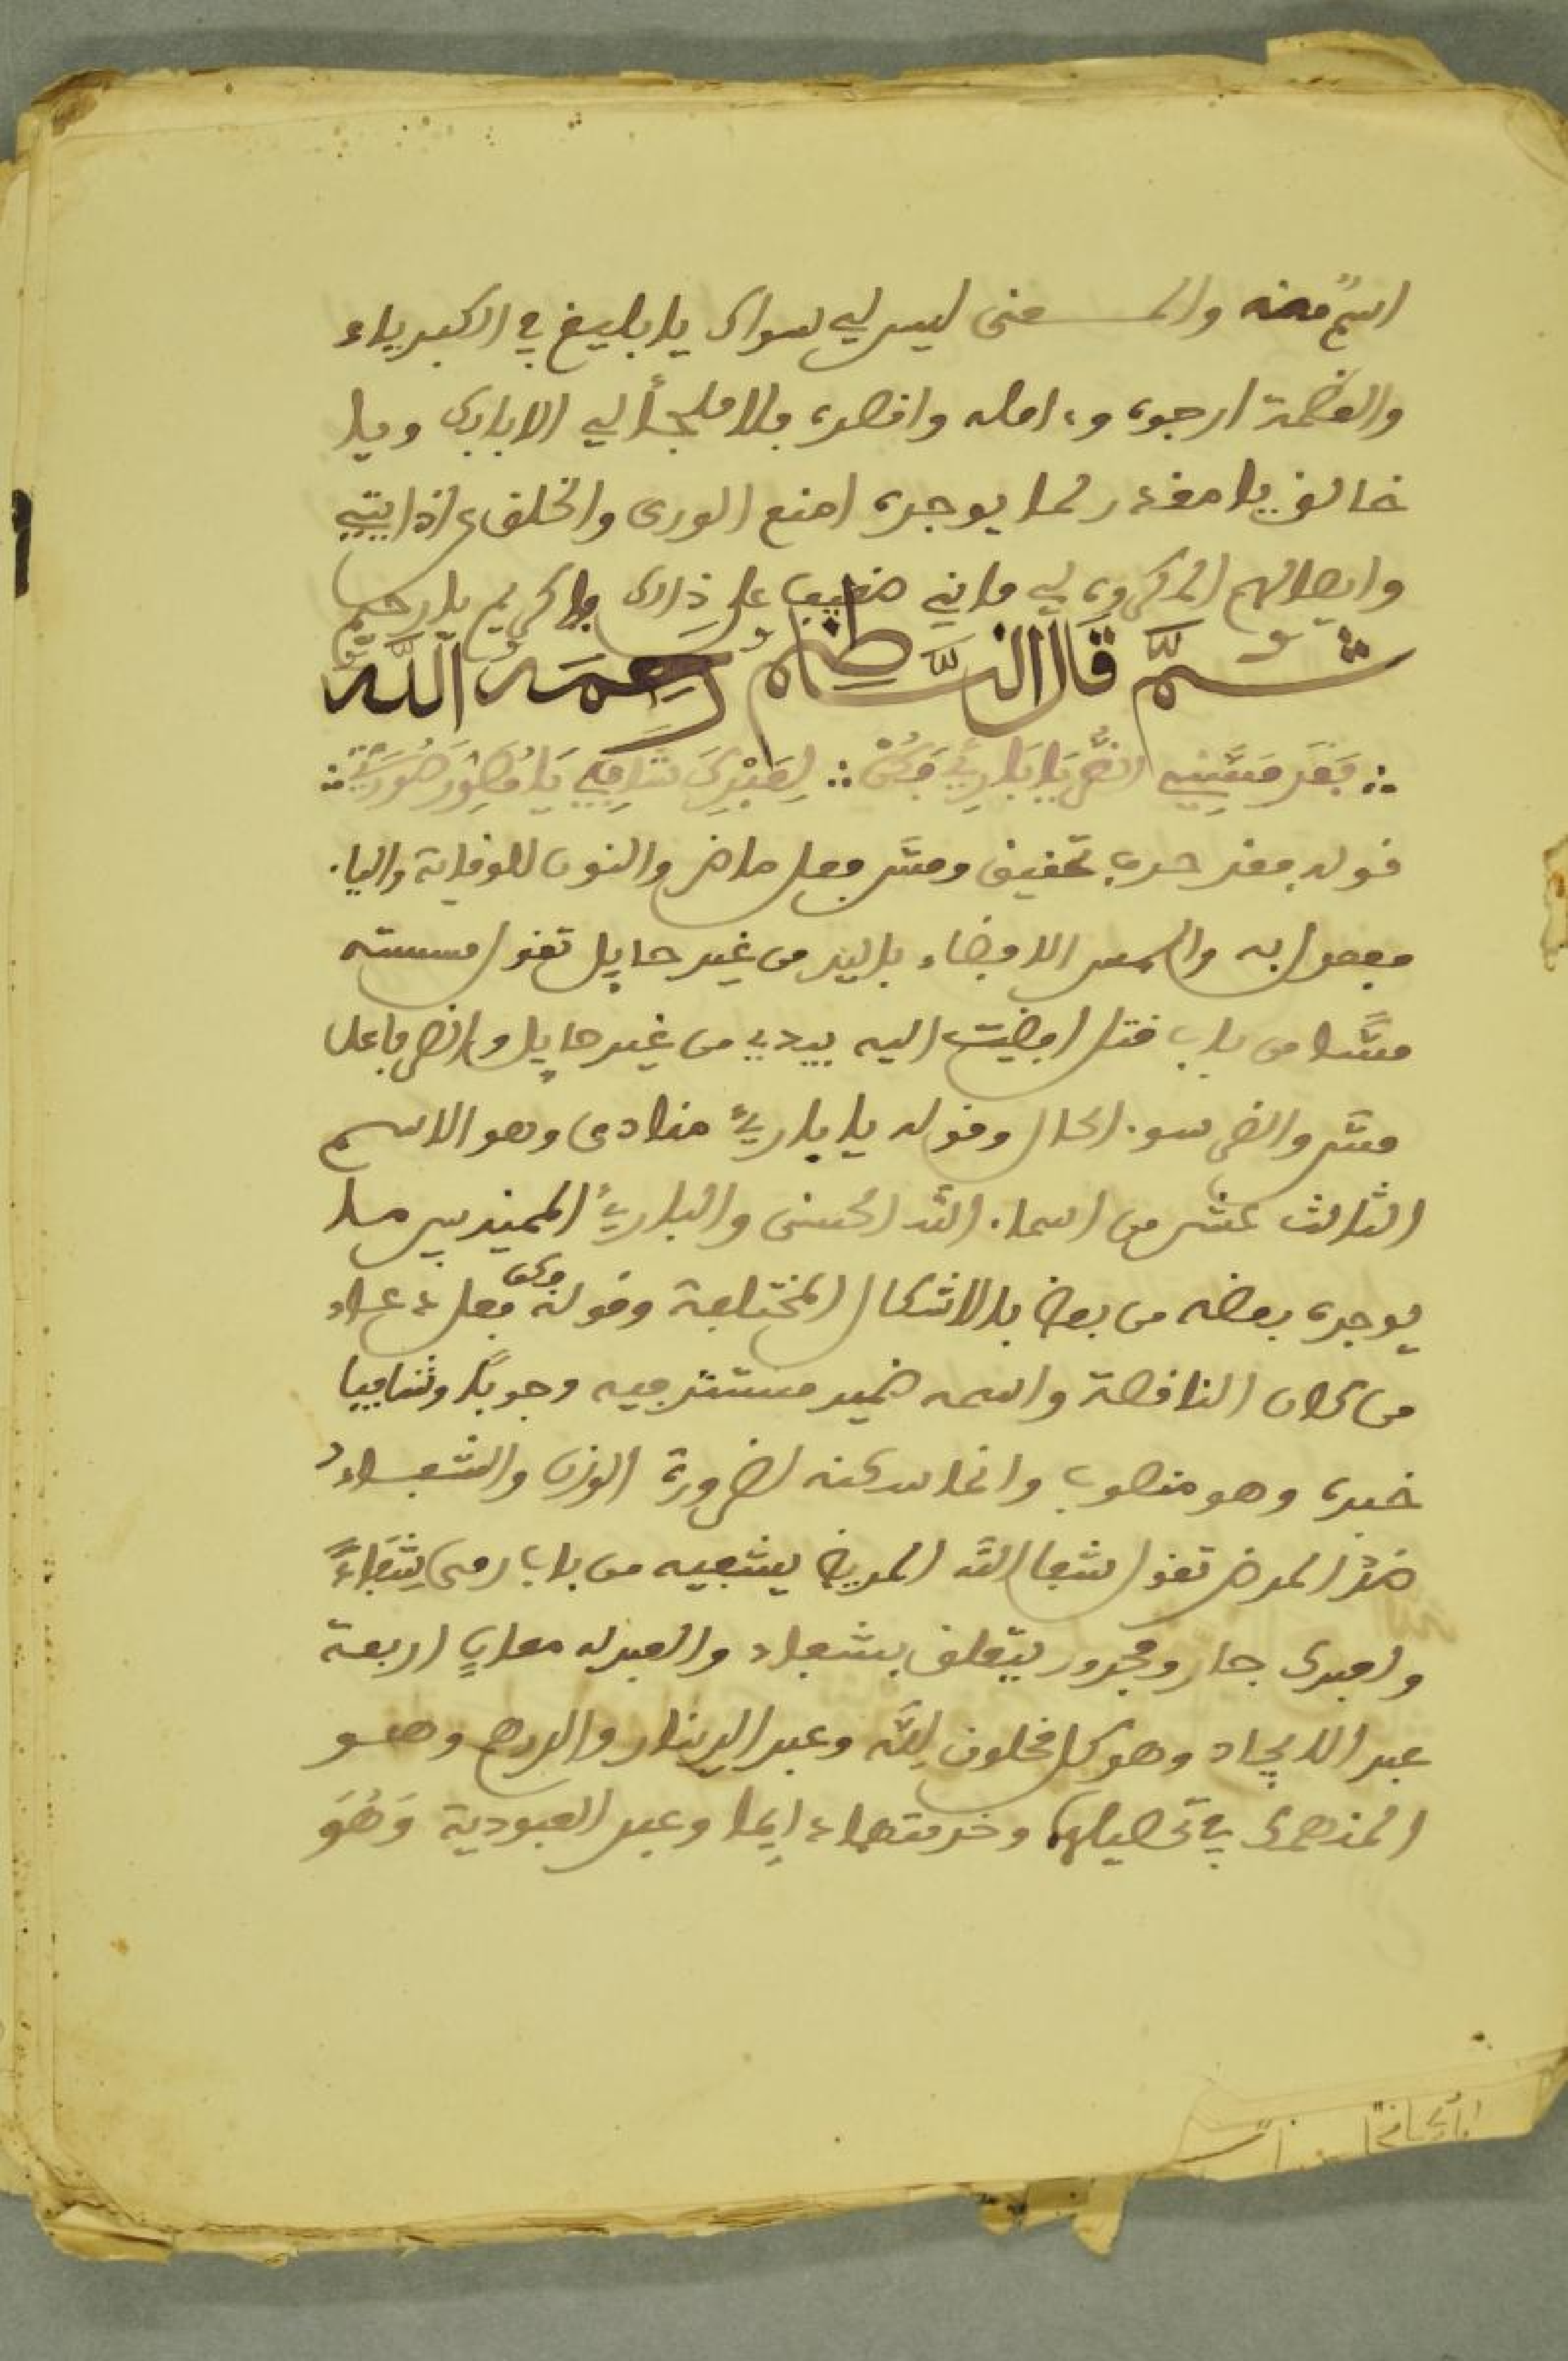 اسم منه والمعنى ليس لي سواك يا بليغ في الكبرياء
والعظمة ارجوه وءامله واقصده فلا ملجأ لي الا بابك ويا
خالق يا مقدر لما يوجده امنع الورى والخلق اذايتي
وايصالهم المكروه لي فاني ضعيف على ذلك يا كريم يا رحيم
ثم قال الناظم رحمه الله
فقد مسني الضر يا بارئ فكن لعبدك شافي يا مصور صورتي
قوله فقد حرف تحقيق ومس فعل ماض والنون للوقاية والياء
مفعول به والمس الافضاء باليد من غير حايل تقول مسسته
مسا من باب قتل افضيت اليه بيدي من غير حايل والضر فاعل
مس والضر سوء الحال وقوله يا بارئ منادى وهو الاسم
الثالث عشر من اسماء الله الحسنى والبارئ المميز بين ما
يوجده بعضه من بعض بالاشكال المختلفة وقوله فكن فعل دعاء
من كان الناقصة واسمه ضمير مستتر فيه وجوبا وشافيا
خبره وهو منصوب وانما سكنه لضرورة الوزن والشفاء
ضد المرض تقول شفا الله المريض يشفيه من باب رمى شفاء
ولعبدك جار ومجرور يتعلق بشفاء والعبد له معان اربعة
عبد الايجاد وهو كل مخلوق لله وعبد الدينار والدرهم وهو
المنهمك في تحصيلها وخدمتهما دايما وعبد العبودية وهو